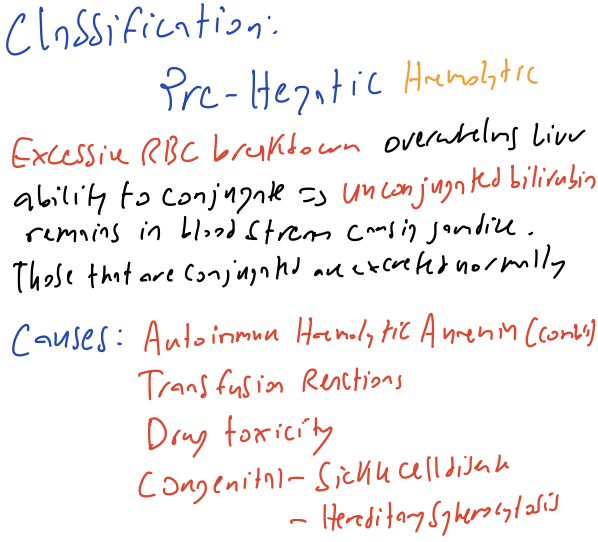 Classification:
Pre-Hepatic Haemolytic
Excessive RBC breakdown overwhelms liver
ability to conjugate => unconjugated bilirubin
remains in bloodstream causing jaundice.
Those that are conjugated are excreted normally
Causes: Autoimmune Haemolytic Anaemia (Combs)
Transfusion Reactions
Drug toxicity
Congenital - Sickle cell disease
- Hereditary Spherocytosis